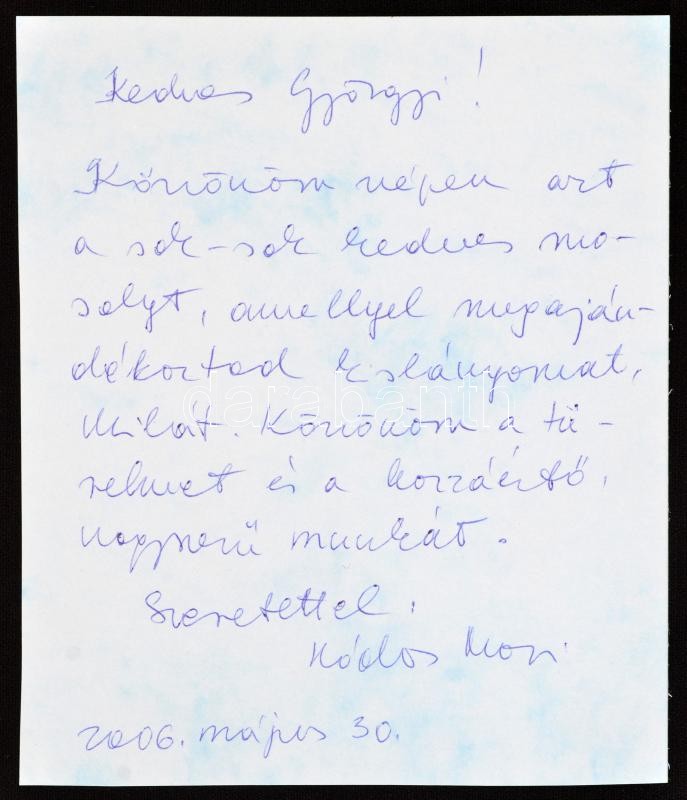 Kedves Györgyi!
Köszönöm szépen azt
a sok-sok kedves mo-
solyt, amellyel megaján-
dékoztad kislányomat,
Milát. Köszönöm a tü-
relmet és a hozzáértő,
nagyszerű munkát.
Szeretettel,
Kódos
2006. május 30.
darabanth